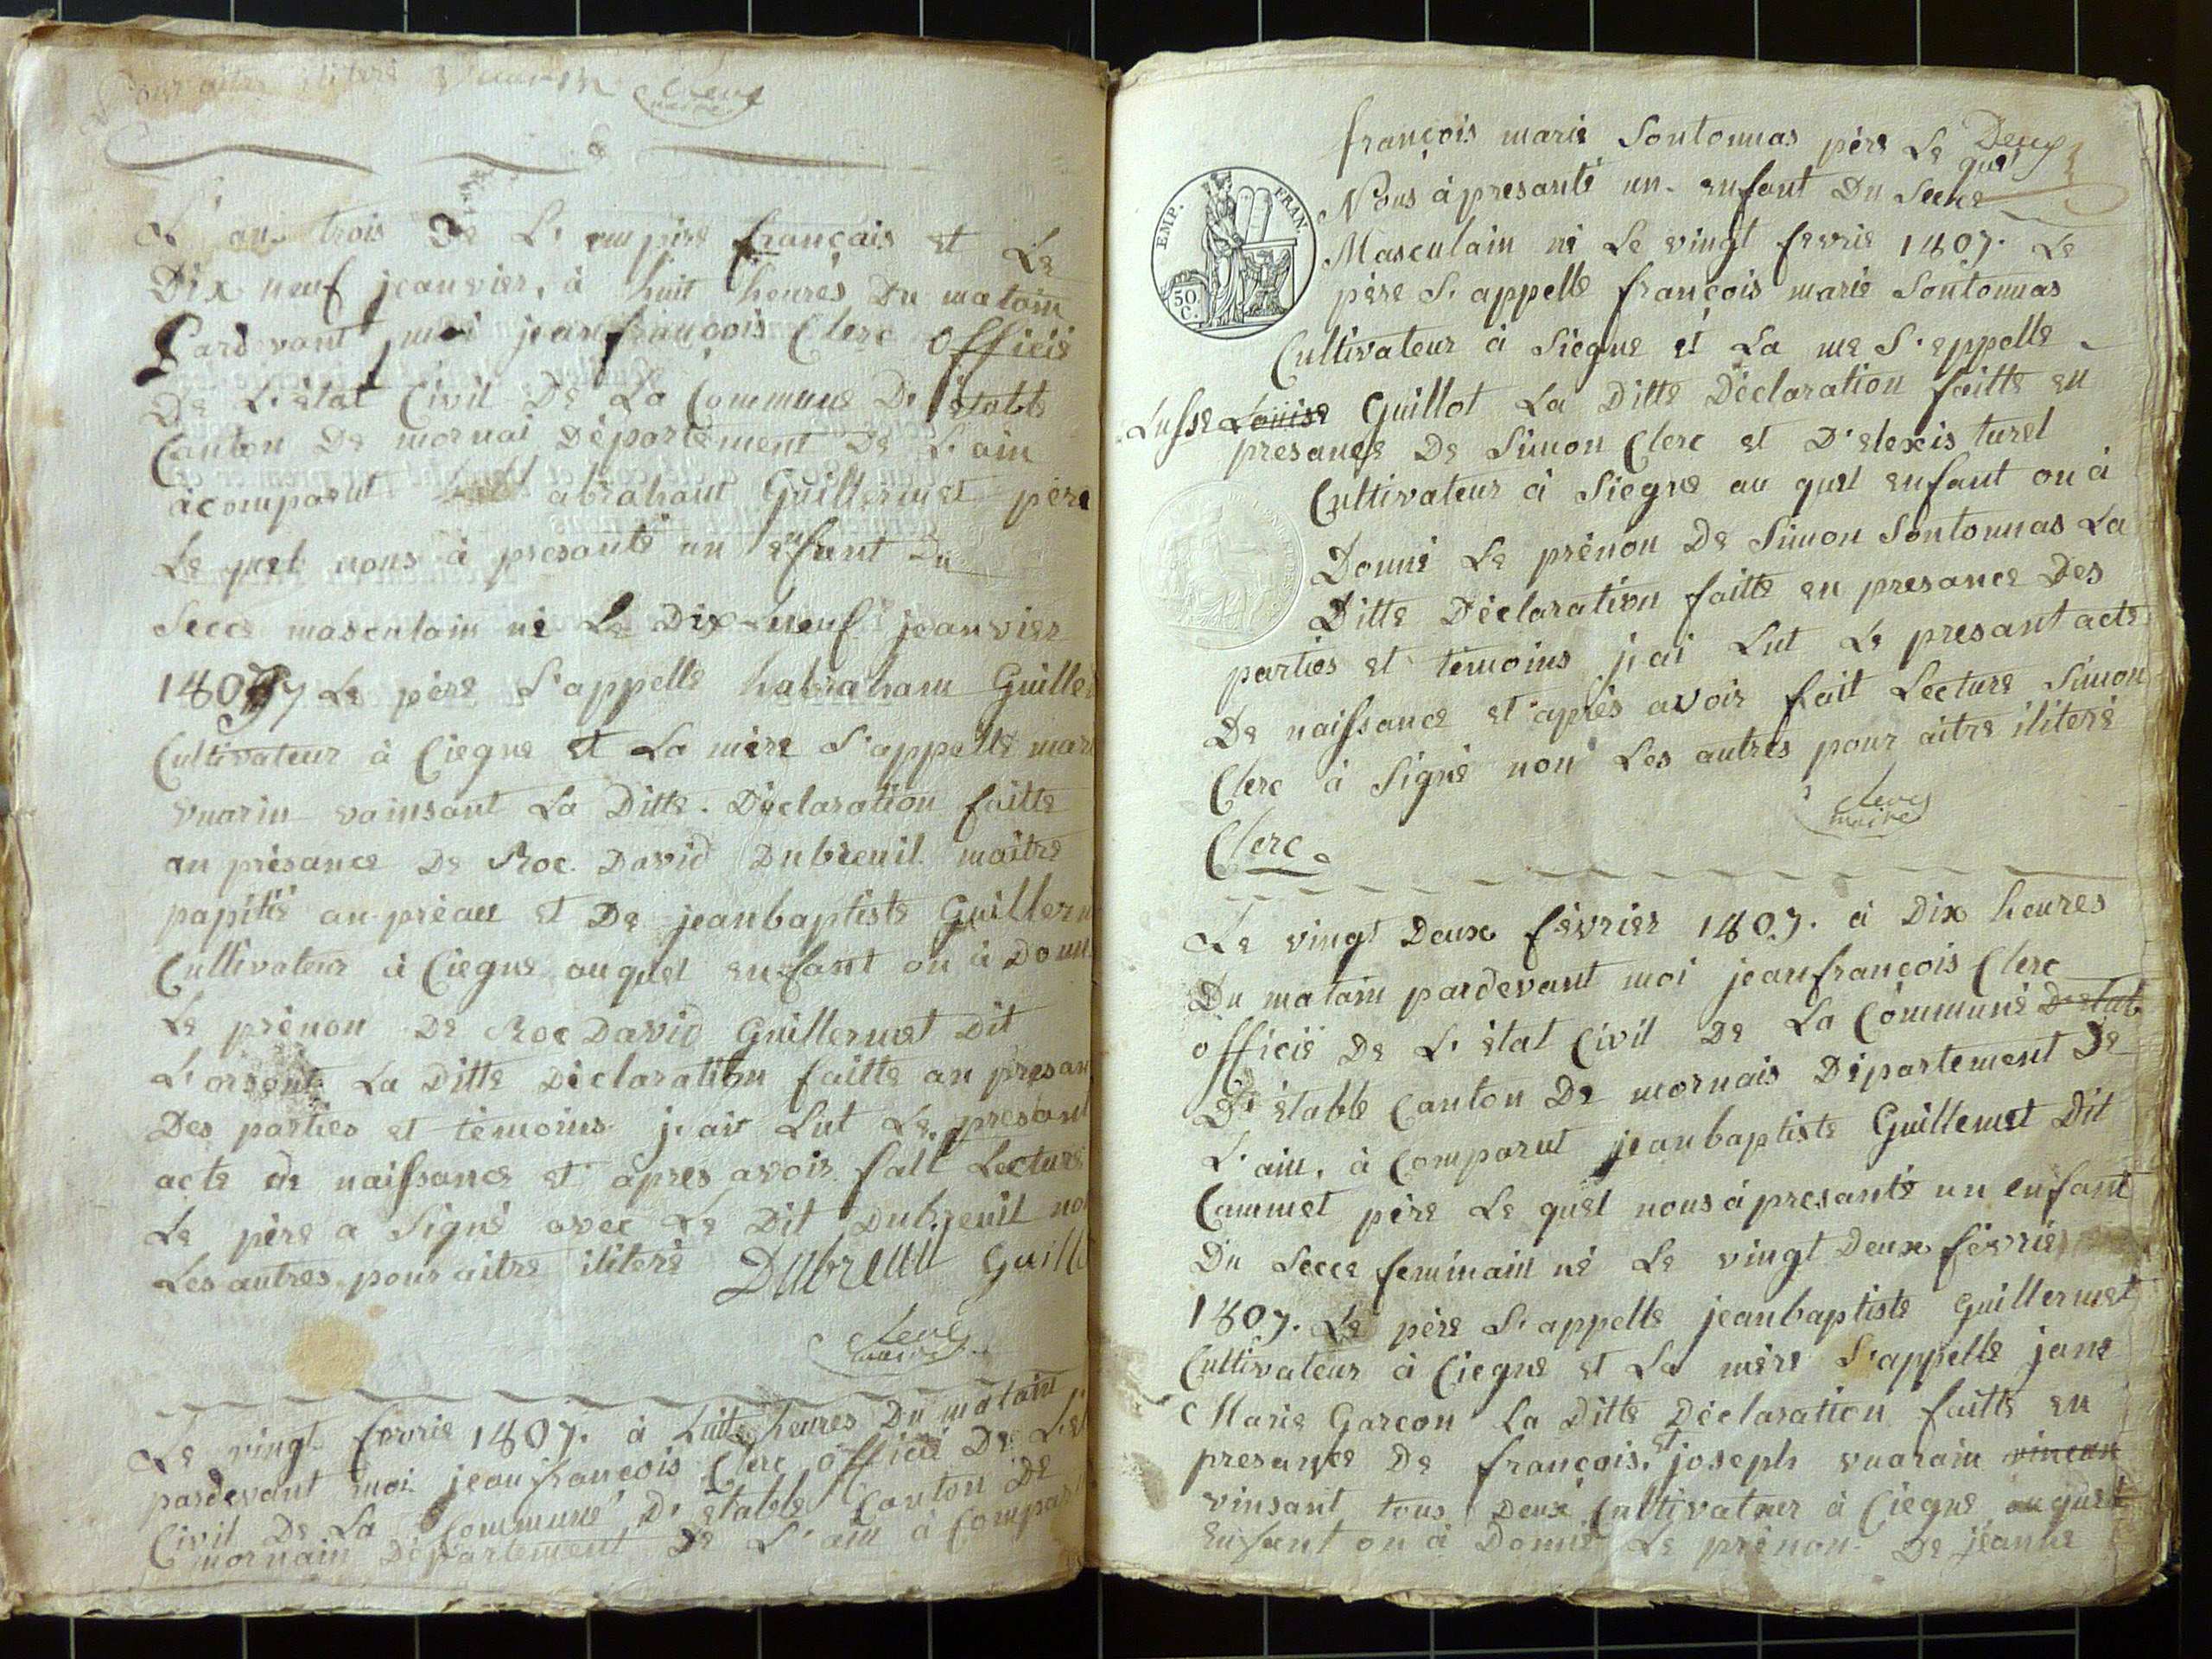 Pour aitre iliteré Vuarin Clerc
maire
L'an trois De L'empire français et Le
Dix neuf jeanvier, à huit heures Du matain
Pardevant moi jeanfrançois Clerc Officié
De L'état Civil De La Commune D'étable
Canton De mornai Département De L'ain
àcomparut abrahant Guillermet père
Le quel nous à presanté un enfant Du
Secce masculain né Le Dix-neuf jeanvier
1807 Le père S'appelle habraham Guille
Cultivateur à Ciegne et La mère S'appelle mar
vuarin vainsant La Ditte. Déclaration faitte
an présance De Roc David Dubreuil maitre
papitié au préau et De jeanbaptiste Guillerm
Cultivateur à Ciegne auquel enfant on à Donn
Le prénon De Roc David Guillermet Dit
L'orsont La Ditte Déclaration faitte an presan
Des parties et témoins j'ait Lut Le presant
acte de naissance et apres avoir fait Lecture
Le père a Signé avec Le Dit Dubreuil no
Les autres pour aitre iliteré Dubreuil Guill
Clerc
maire
Le vingt fevrie 1807. à huit heures Du matain
pardevant moi jeanfrancois Clerc officié De L'ét
Civil De La Commune D'étable Canton De
mornain Département De L'ain à Compar
Deux
françois marie Sontonnas père Le quel
Nous à presanté un enfant Du Secce
EMP. FRAN.
50 C.
Masculain né Le vingt fevrie 1807. Le
père S'appelle françois marie Sontonnas
Cultivateur à Siegne et La me S'eppelle
Lusse Louise Guillot La Ditte Déclaration faitte en
presance De Simon Clerc et D'elexis turel
Cultivateur à Siegne au quel enfant on à
Donné Le prénon De Simon Sontonnas La
Ditte Déclaration faitte en presance Des
parties et témoins j'ai Lut Le presant acte
De naissance et après avoir fait Lecture Simon
Clerc à Signé non Les autres pour aitre iliteré
Clerc
maire
Clerc
Le vingt Deux février 1807. à Dix heures
Du matain pardevant moi jeanfrançois Clerc
officié De L'état Civil De La Commune D'etab
D'étable Canton De mornais Département De
L'ain, à Comparut jeanbaptiste Guillemet Dit
Cammet père Le quel nous à presanté un enfant
Du Secce feminain né Le vingt Deux févrie
1807. Le père S'appelle jeanbaptiste Guillermet
Cultivateur à Ciegne et La mère S'appelle jane
Marie Garcon La Ditte Déclaration faitte en
presance De françois et joseph vuarain vincan
vinsant tous Deux Cultivateur à Ciegne auquel
enfant on à Donné Le prénon De jeanne